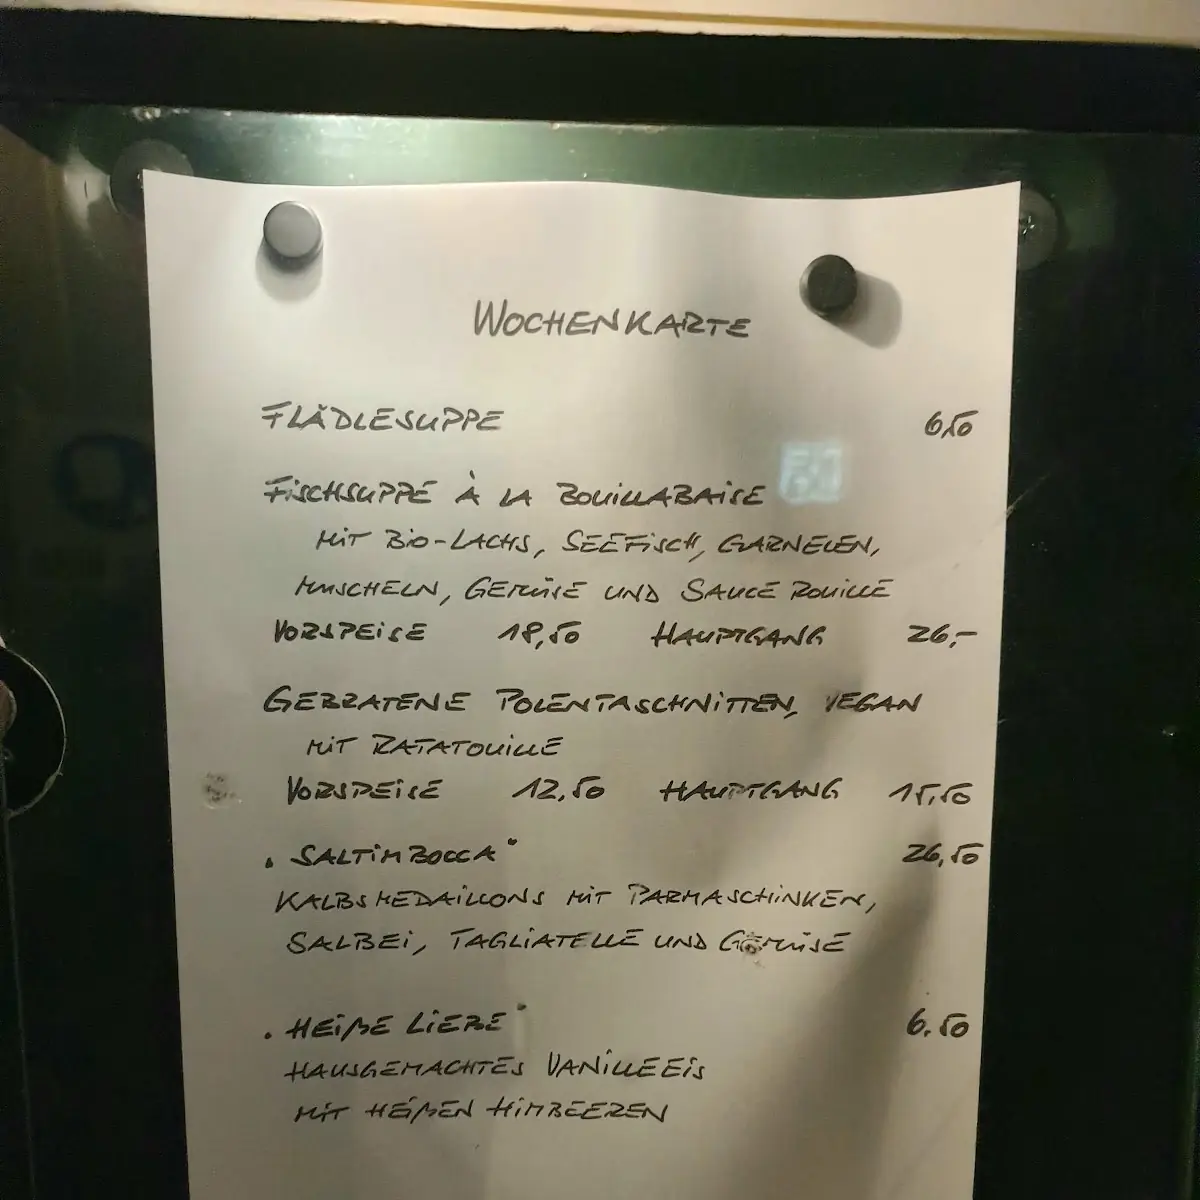 WOCHENKARTE
FLÄDLESUPPE 6,50
FISCHSUPPE À LA BOUILLABAISE
MIT BIO-LACHS, SEEFISCH, GARNELEN,
MUSCHELN, GEMÜSE UND SAUCE ROUILLE
VORSPEISE 18,50 HAUPTGANG 26,-
GEBRATENE POLENTASCHNITTEN, VEGAN
MIT RATATOUILLE
VORSPEISE 12,50 HAUPTGANG 15,50
„SALTIMBOCCA" 26,50
KALBSMEDAILLONS MIT PARMASCHINKEN,
SALBEI, TAGLIATELLE UND GEMÜSE
„HEIßE LIEBE" 6,50
HAUSGEMACHTES VANILLEEIS
MIT HEIßEN HIMBEEREN